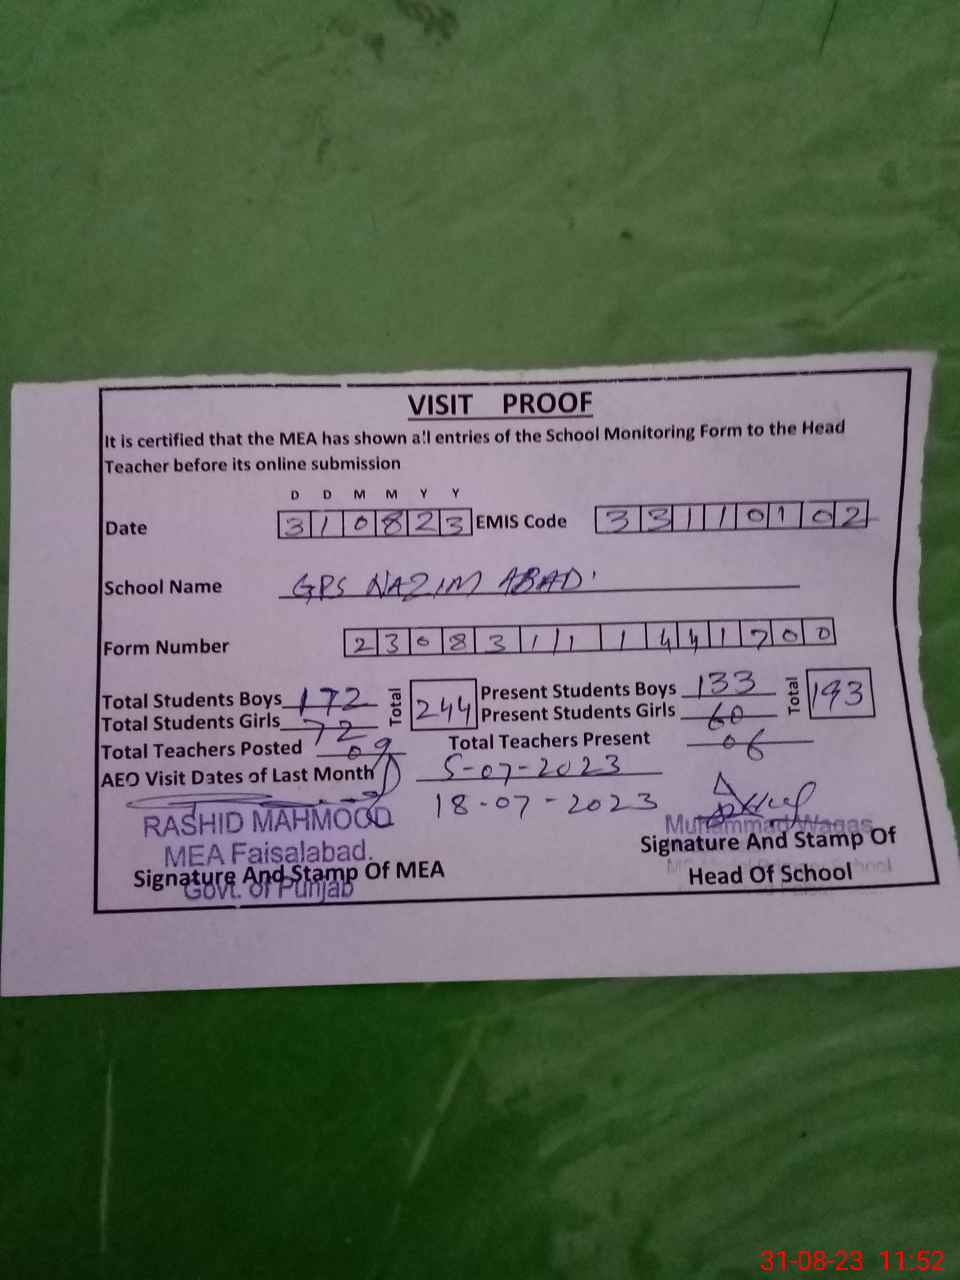 VISIT PROOF
It is certified that the MEA has shown all entries of the School Monitoring Form to the Head
Teacher before its online submission
D D M M Y Y
Date 310823 EMIS Code 33110102
School Name GPS NAZIM ABAD
Form Number 23083111441700
Total Students Boys 172 Total 244 Present Students Boys 133 Total 193
Total Students Girls 72 Present Students Girls 60
Total Teachers Posted 09 Total Teachers Present 06
AEO Visit Dates of Last Month 5-07-2023
18-07-2023
RASHID MAHMOOD
MEA Faisalabad.
Govt. of Punjab
Signature And Stamp Of MEA
Muhammad Waqas
School
Signature And Stamp Of
Head Of School
31-08-23 11:52